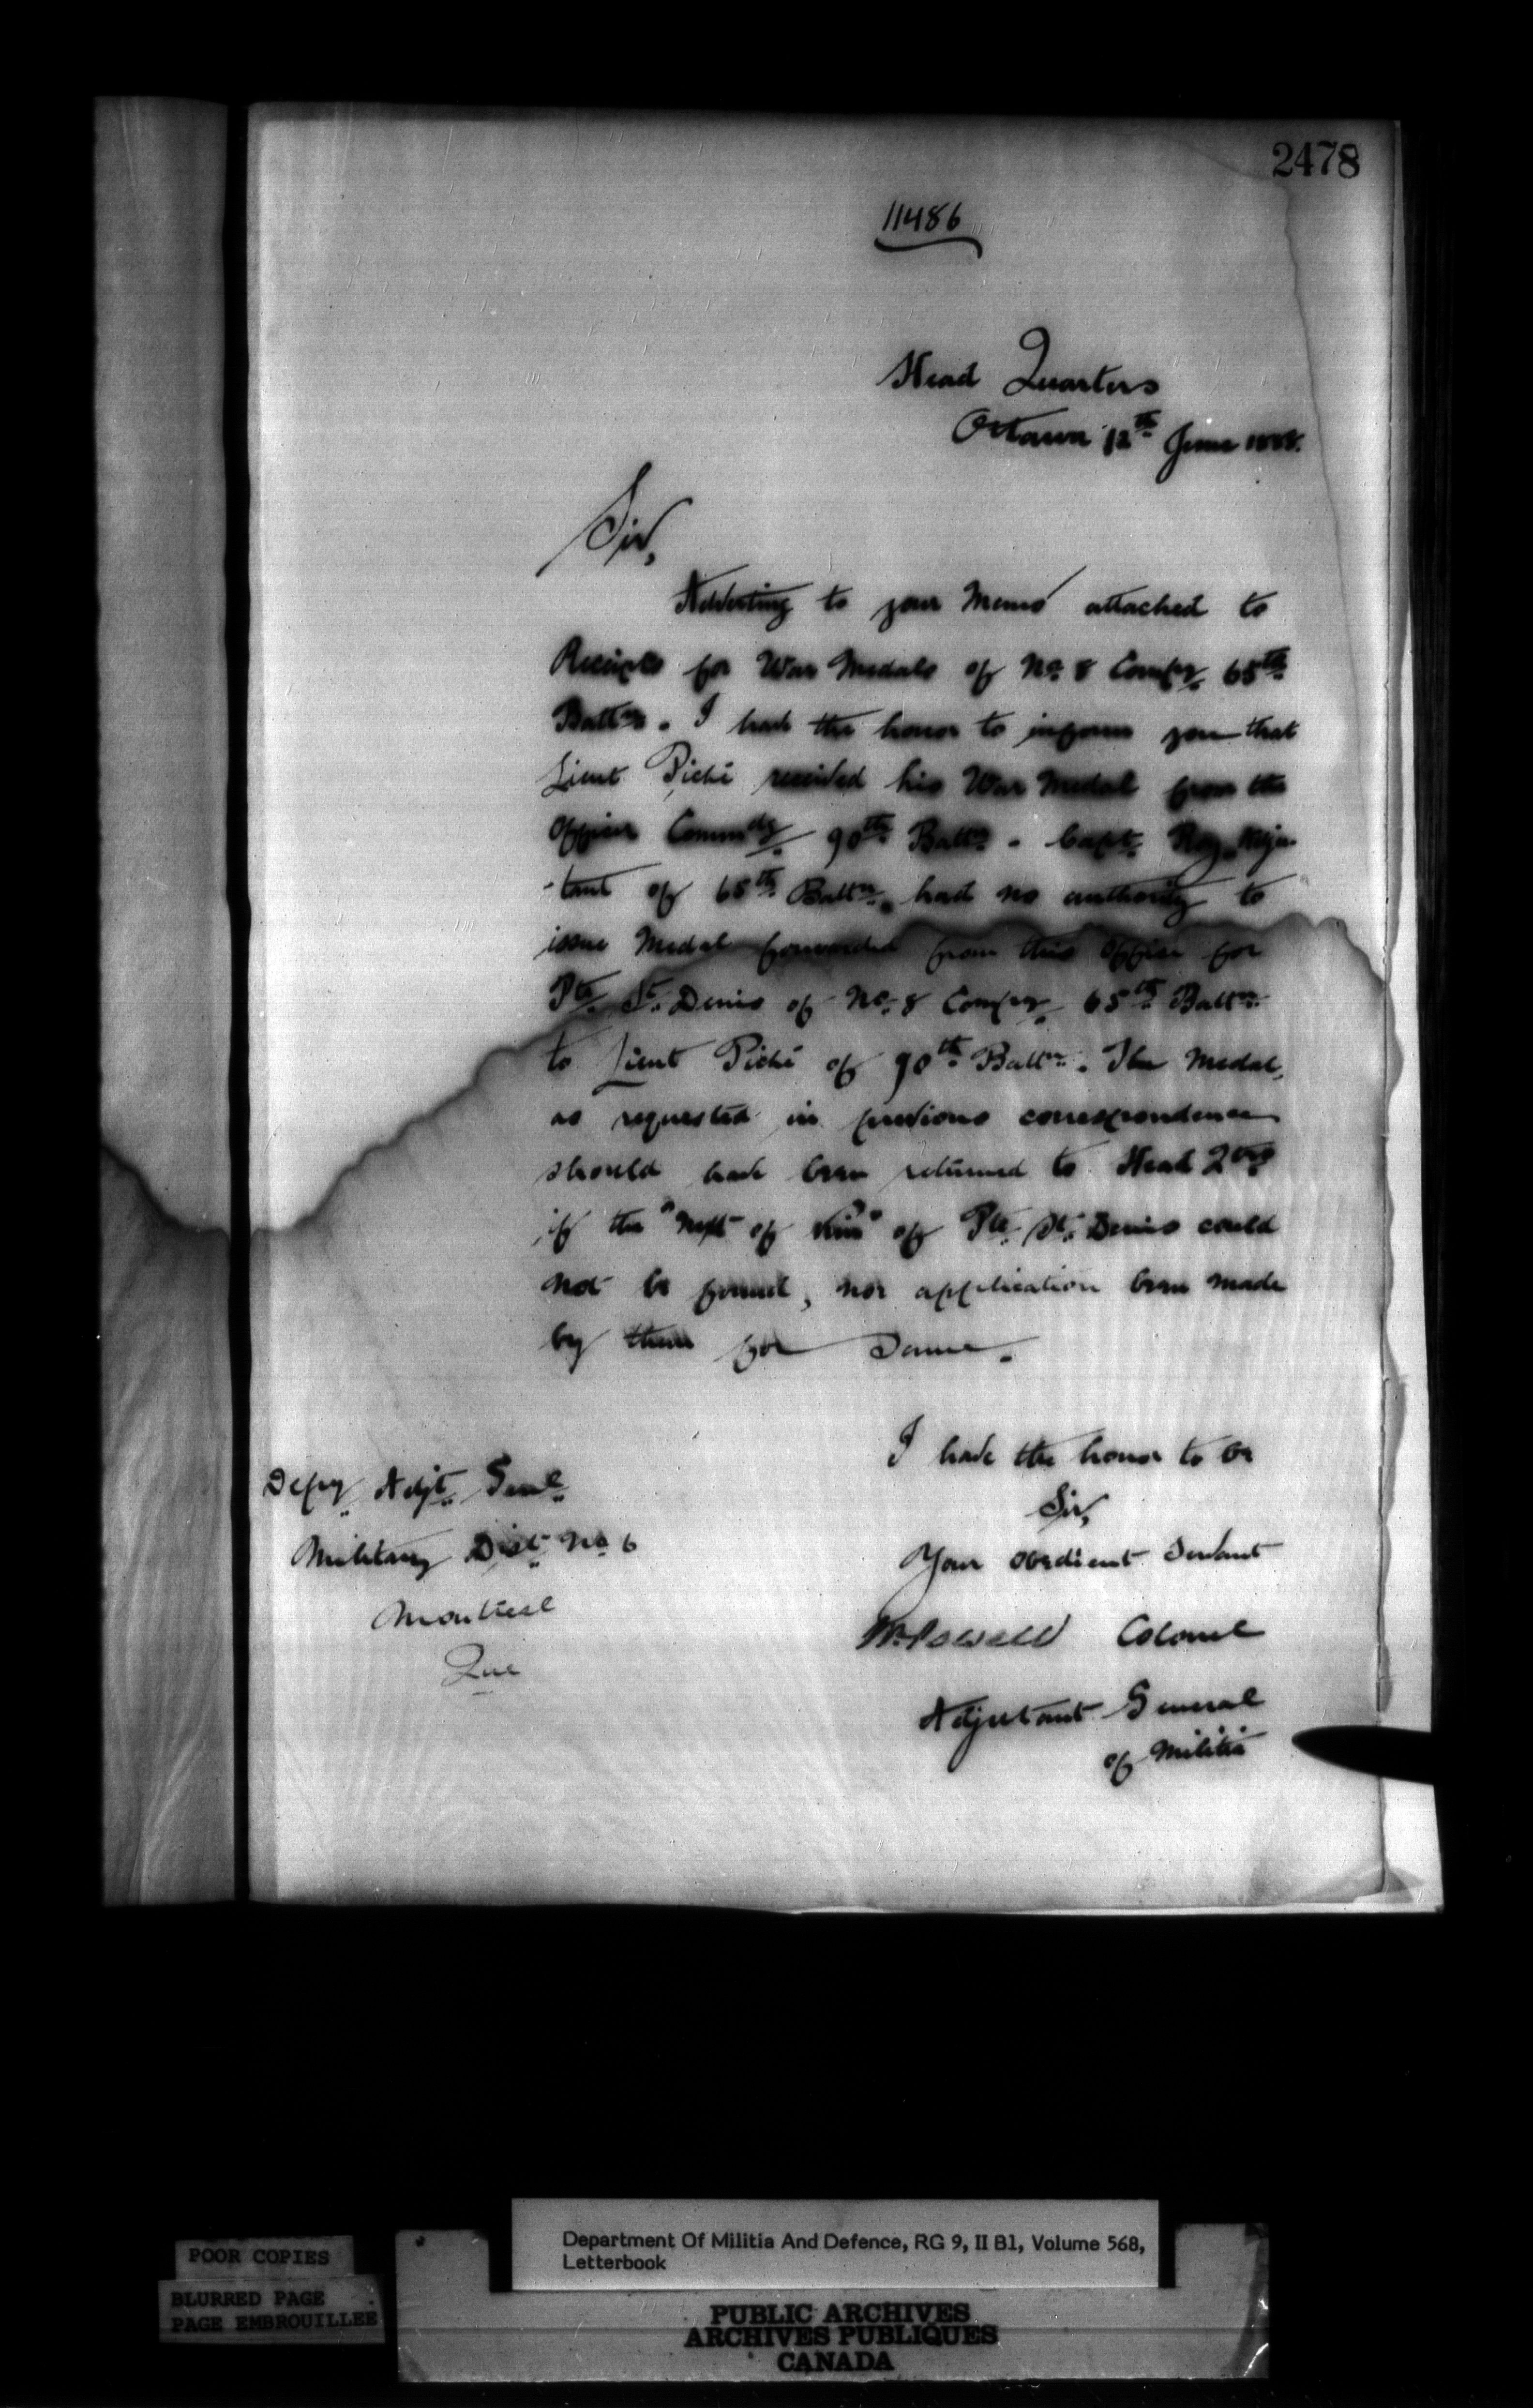 2478
11486
Head Quarters
Ottawa 12th June 1888.
Sir,
Adverting to your Memo attached to
Receipts for War Medals of No. 8 Compy. 65th
Battn. I have the honor to inform you that
Lieut Piché received his War Medal from the
Officer Commdg 90th Battn. Capt. Roy, Adju-
-tant of 65th Battn. had no authority to
issue Medal forwarded from this office for
Pte. St. Denis of No. 8 Compy. 65th Battn.
to Lieut Piché of 90th Battn. The Medal,
as requested in previous correspondence
should have been returned to Head Qrs
if the "next of kin" of Pte. St. Denis could
not be found, nor application been made
by them for same.
I have the honor to be
Sir,
Your obedient servant
W. Powell Colonel
Adjutant General
of Militia
Depy Adjt. Genl.
Military Dist. No. 6
Montreal
Que
Department Of Militia And Defence, RG 9, II B1, Volume 568,
Letterbook
POOR COPIES
BLURRED PAGE
PAGE EMBROUILLEE
PUBLIC ARCHIVES
ARCHIVES PUBLIQUES
CANADA